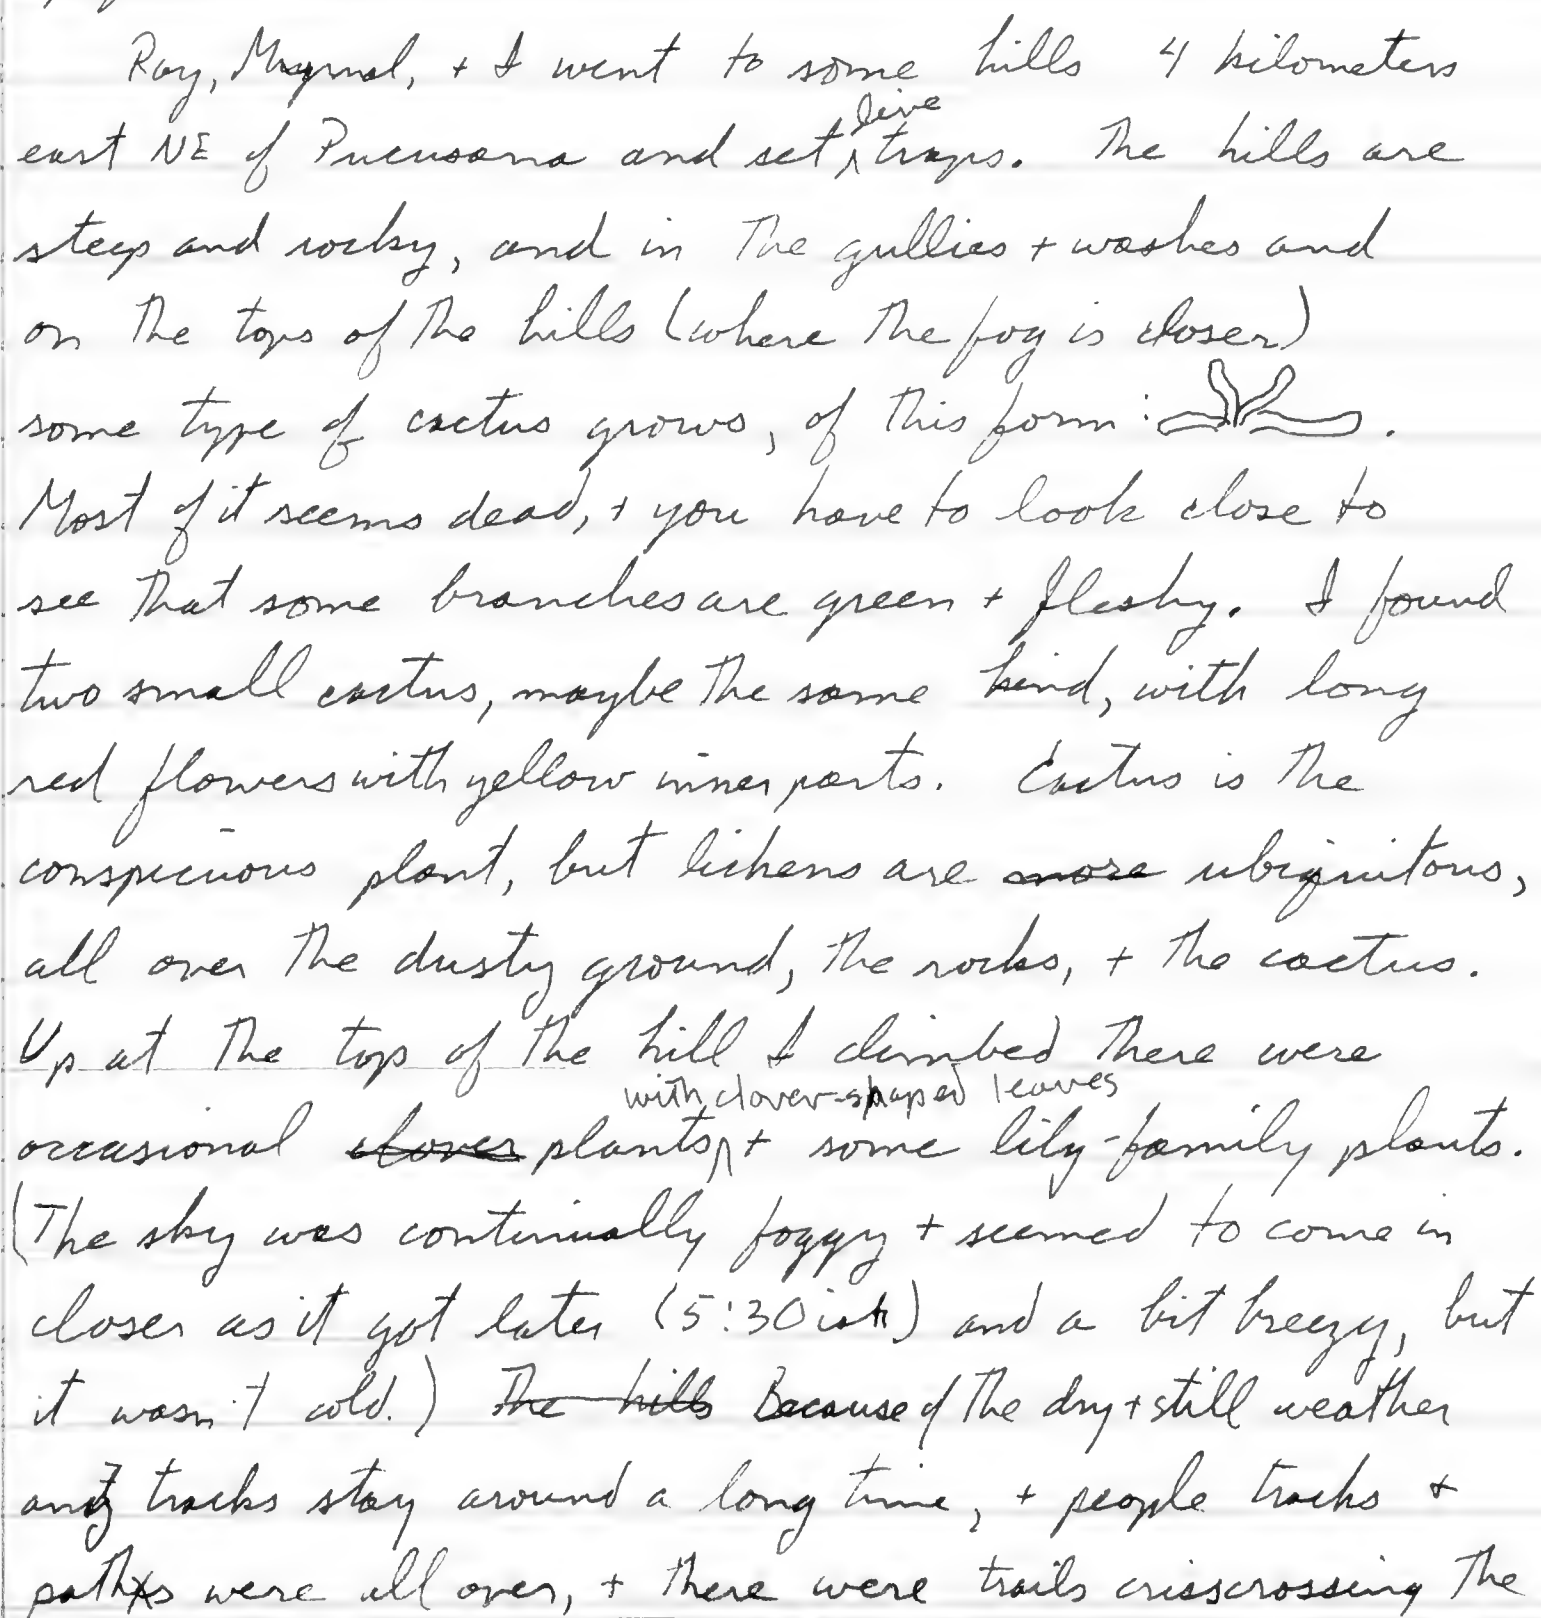 Ray, + I went to some hills 4 kilometers
east NE of Pucusana and set live traps. The hills are
steep and rocky, and in the gullies + washes and
on the tops of the hills (where the fog is closer)
some type of cactus grows, of this form: .
Most of it seems dead, + you have to look close to
see that some branches are green + fleshy. I found
two small cactus, maybe the same kind, with long
red flowers with yellow inner parts. Cactus is the
conspicuous plant, but lichens are more ubiquitous,
all over the dusty ground, the rocks, + the cactus.
Up at the top of the hill I climbed there were
with clover-shaped leaves
occasional clover plants, + some lily-family plants.
(The sky was continually foggy + seemed to come in
closer as it got later (5:30ish) and a bit breezy, but
it wasn't cold.) The hills Because of the dry + still weather
any tracks stay around a long time, + people tracks +
paths were all over, + there were trails crisscrossing the